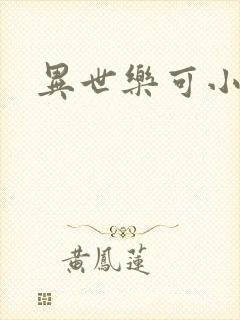 異世樂可小
黃鳳蓮